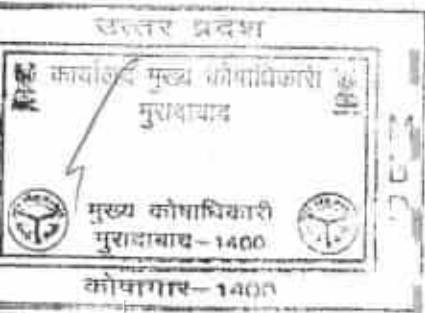 उत्तर प्रदेश
कार्यालय मुख्य कोषाधिकारी
मुरादाबाद
मुख्य कोषाधिकारी
मुरादाबाद-1400
कोषागार-1400